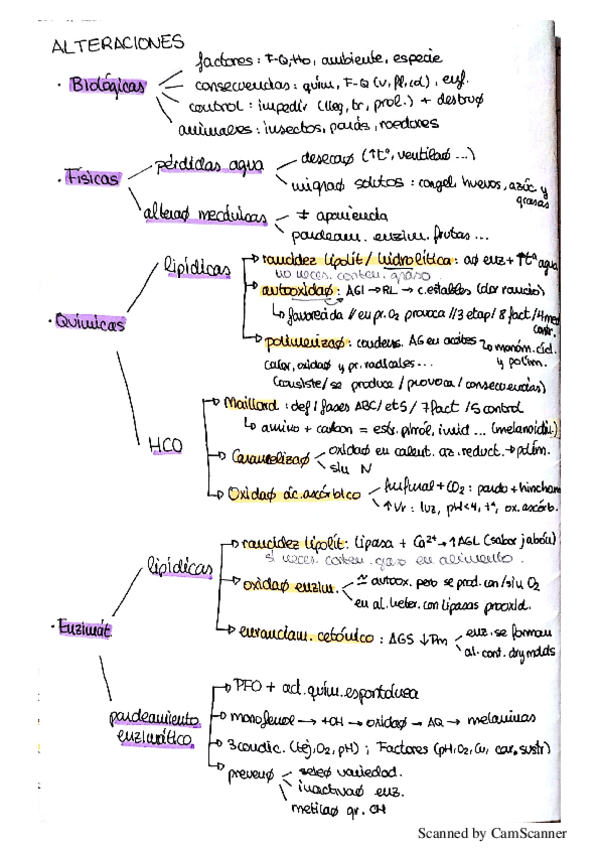 ALTERACIONES
· Biológicas
factores: F-Q, Ho, ambiente, especie
consecuencias: quím, F-Q (v, fl, col), enf.
control: impedir (lleg, tr, prol.) + destruø
animales: insectos, parás, roedores
· Físicas
pérdidas agua
desecaø (↑tº, ventilaø ...)
migraø solutos: congel. huevos, azúc y grasas
alteraø mecánicas
≠ apariencia
pardeam. enzim. frutas ...
· Químicas
lipídicas
rancidez lipolít / hidrolítica: aø enz + ↑tª agua
no neces. conten. graso
autooxidaø: AGI → RL → c. estables (olor rancio)
↳ favorecida // eu pr. O2 provoca /13 etap/ 8 fact /4 med contr.
polimerizaø: condens. AG en aceites
calor, oxidaø y pr. radicales ...
(consiste / se produce / provoca / consecuencias)
HCO
Maillard: def / fases ABC / etS / 7 fact / 5 control
↳ amino + carbon = estr. pirrol, imid ... (melanoidin.)
Caramelizaø
oxidaø en calent. az. reduct. → polím.
sin N
Oxidaø ác. ascórbico
furfural + CO2: pardo + hincham
↑Vr: luz, pH<4, tª, ox. ascórb.
· Enzimát.
lipídicas
rancidez lipolít: lipasa + Ca2+ → ↑AGL (sabor jabón)
si neces. conten. graso en alimento.
oxidaø enzim.
≃ autoox. pero se prod. con/sin O2
en al. heter. con lipasas prooxid.
enranciam. cetónico: AGS ↓Pm
enz. se forman
al. cont.
pardeamiento enzimático
PFO + act. quím. espontánea
monofenol → +OH → oxidaø → AQ → melaninas
3 condic. (tej, O2, pH); Factores (pH, O2, Cu, car. sustr)
prevenø
selecø variedad.
inactivaø enz.
metilaø gr. OH
Scanned by CamScanner